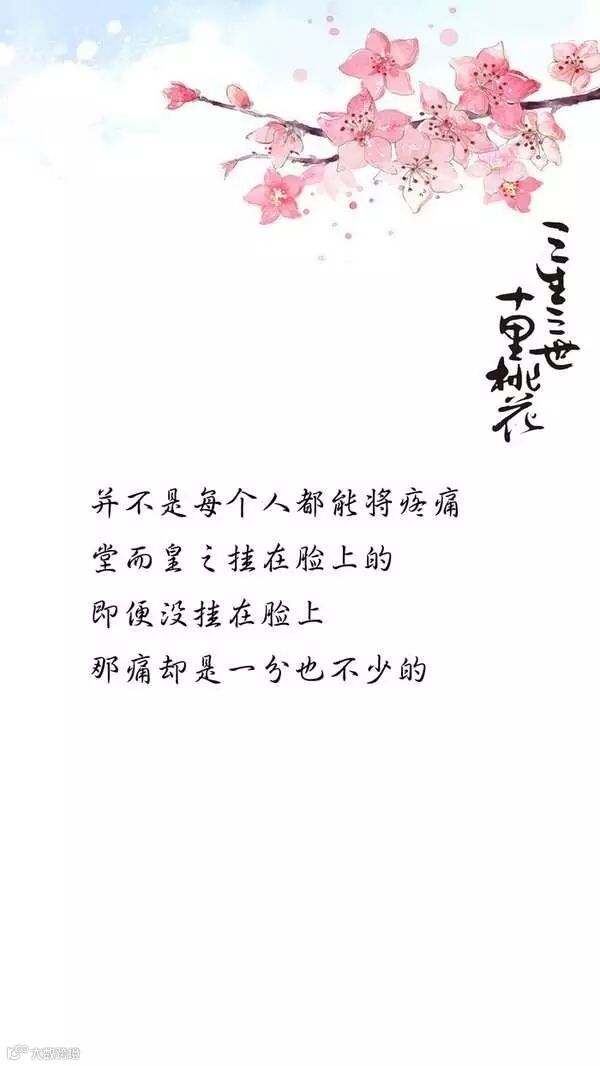 三生三世
十里桃花
并不是每个人都能将疼痛
堂而皇之挂在脸上的
即便没挂在脸上
那痛却是一分也不少的
大数跨境